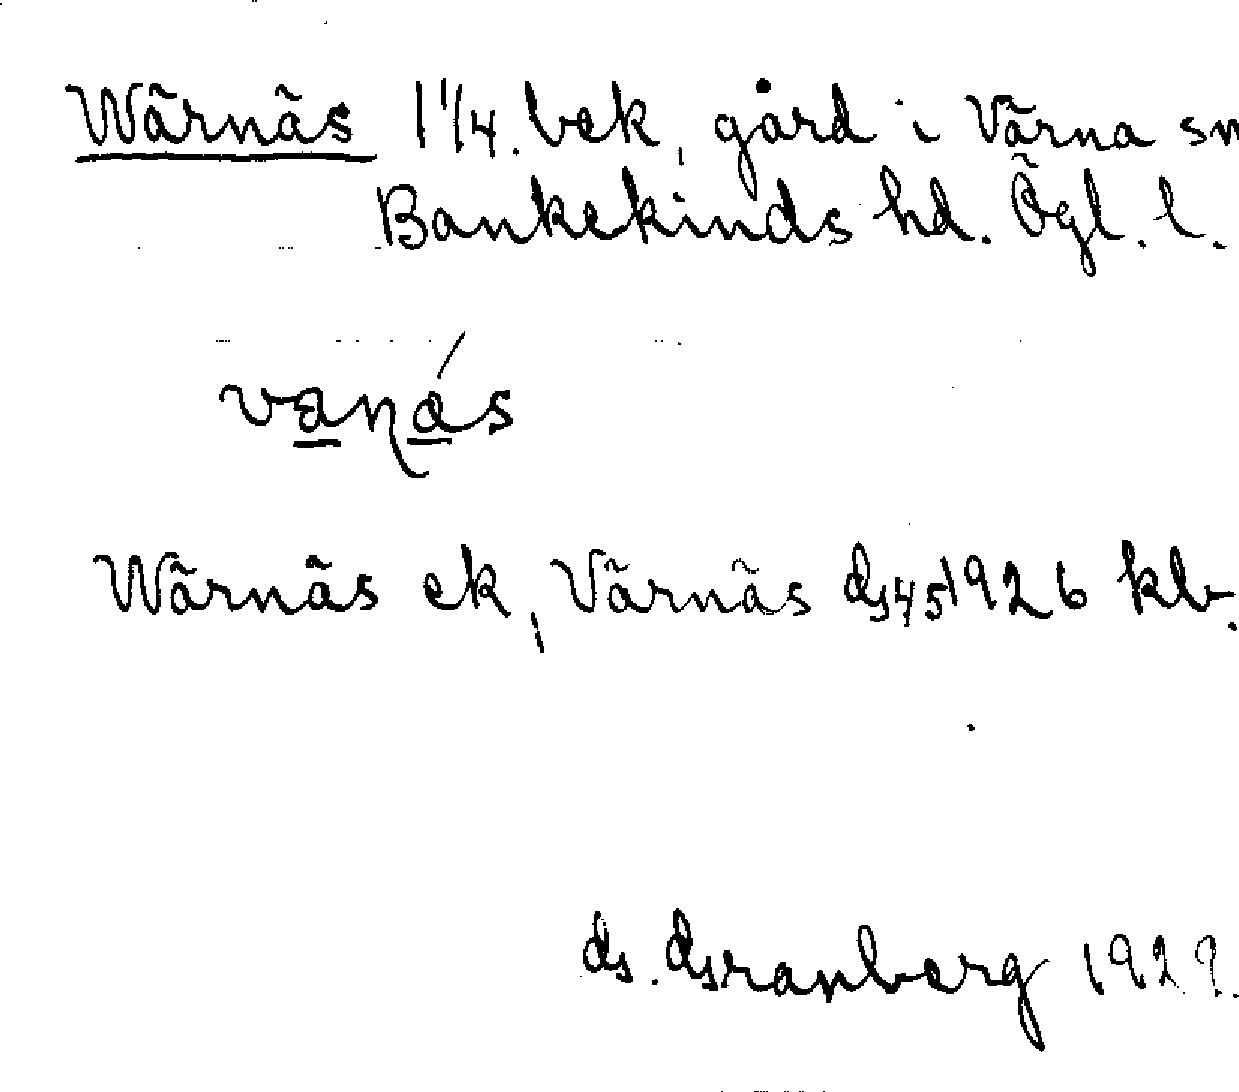 Wärnäs 1 1/4. bek, gård i Värna sn
Bankekinds hd. Ögl. l.
vanás
Wärnäs ek, Värnäs G45 1926 kb.
G. Granberg 192